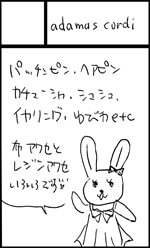 adamas cordi
パッチンピン、ヘアピン
カチューシャ、シュシュ、
イヤリング、ゆびわetc
布アクセと
レジンアクセ
いろいろです♡